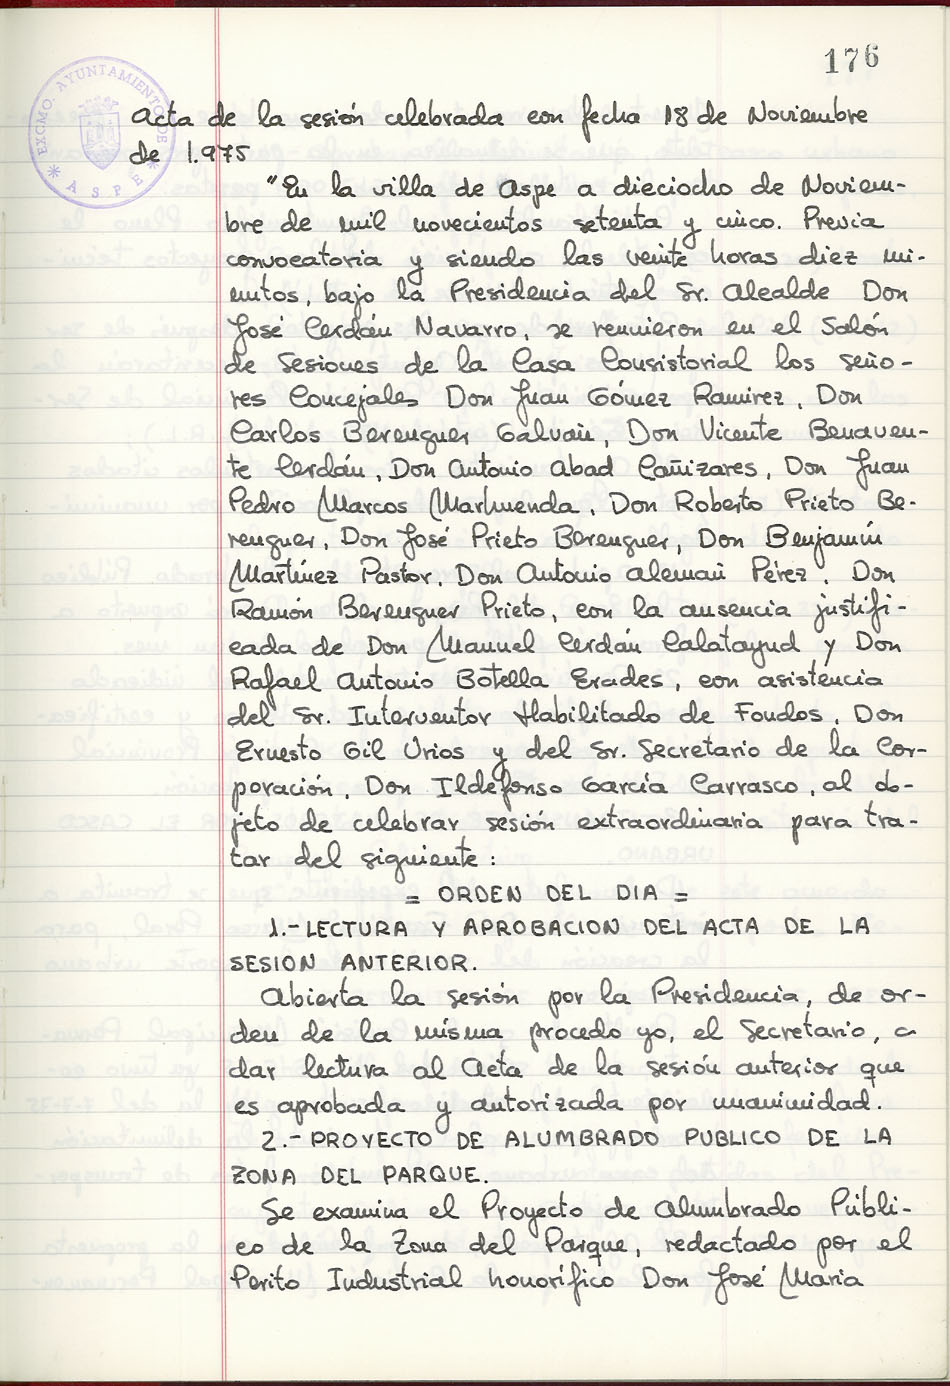 176
EXCMO. AYUNTAMIENTO DE
ASPE
Acta de la sesión celebrada con fecha 18 de Noviembre
de 1.975
"En la villa de Aspe a dieciocho de Noviem-
bre de mil novecientos setenta y cinco. Previa
convocatoria y siendo las veinte horas diez mi-
nutos, bajo la Presidencia del Sr. Alcalde Don
José Cerdán Navarro, se reunieron en el Salón
de Sesiones de la Casa Consistorial los seño-
res Concejales Don Juan Gómez Ramirez, Don
Carlos Berenguer Galvañ, Don Vicente Benaven-
te Cerdán, Don Antonio Abad Cañizares, Don Juan
Pedro Marcos Marhuenda, Don Roberto Prieto Be-
renguer, Don José Prieto Berenguer, Don Benjamín
Martínez Pastor, Don Antonio Alemañ Pérez, Don
Ramón Berenguer Prieto, con la ausencia justifi-
cada de Don Manuel Cerdán Calatayud y Don
Rafael Antonio Botella Erades, con asistencia
del Sr. Interventor Habilitado de Fondos, Don
Ernesto Gil Urios y del Sr. Secretario de la Cor-
poración, Don Ildefonso García Carrasco, al ob-
jeto de celebrar sesión extraordinaria para tra-
tar del siguiente:
= ORDEN DEL DIA =
1.- LECTURA Y APROBACION DEL ACTA DE LA
SESION ANTERIOR.
Abierta la sesión por la Presidencia, de or-
den de la misma procedo yo, el Secretario, a
dar lectura al Acta de la sesión anterior que
es aprobada y autorizada por unanimidad.
2.- PROYECTO DE ALUMBRADO PUBLICO DE LA
ZONA DEL PARQUE.
Se examina el Proyecto de Alumbrado Públi-
co de la Zona del Parque, redactado por el
Perito Industrial honorífico Don José Maria